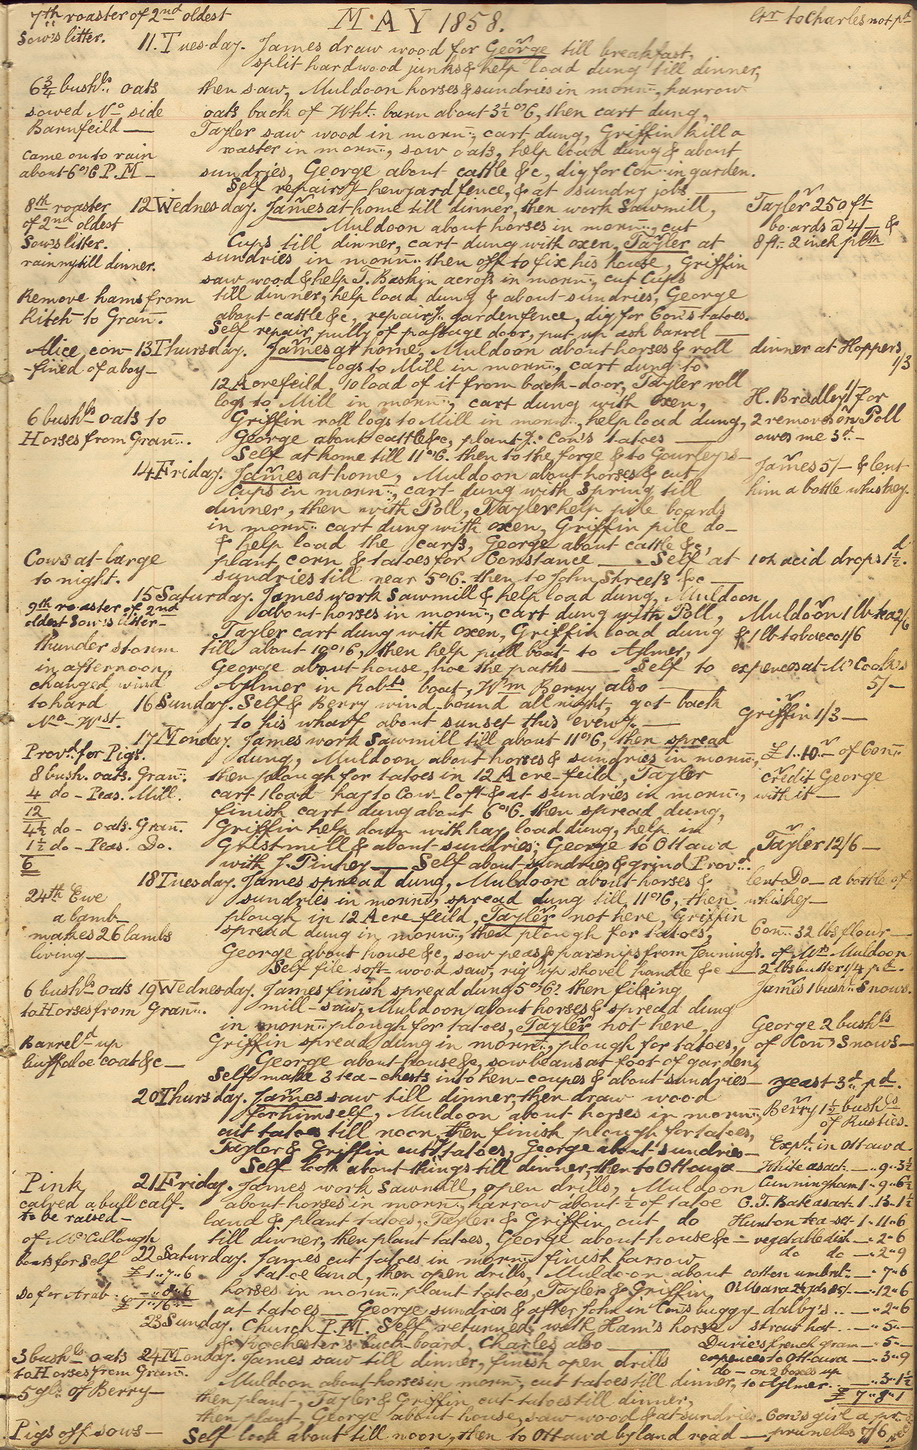 7th roaster of 2nd oldest
MAY 1858.
Gr. to Charles not pd
Sow's litter.
11. Tuesday. James draw wood for George till breakfast,
split hardwood junks & help load dung till dinner,
6 3/4 bushls. oats
then saw, Muldoon horses & sundries in morng., harrow
sowed No. side
oats back of Wht. barn about 3½ o'6, then cart dung,
Barnfeild —
Tayler saw wood in morng., cart dung, Griffin kill a
came on to rain
roaster in morng., sow oats, help load dung & about
about 6 o'6 P.M —
sundries, George about cattle &c, dig for Con in garden.
Self repairg. hewyard fence, & at sundry jobs —
8th roaster
12 Wednesday. James at home till dinner, then work Sawmill,
Tayler 250 ft
of 2nd oldest
Muldoon about horses in morng., cut
boards @ 4/- &
Sow's litter.
Cups till dinner, cart dung with oxen, Tayler at
8 ft. 2 inch plth
rainy till dinner.
sundries in morng. then off to fix his house, Griffin
saw wood & help T. Baskin across in morng., cut Cups
Remove hams from
till dinner, help load dung & about sundries, George
Kitch to Gran.
about cattle &c, repairg. garden fence, dig for Con's tatoes.
Self repair, pully of passage door, put up ash barrel —
Alice, con-
13 Thursday. James at home, Muldoon about horses & roll
dinner at Hoppers
-fined of a boy —
logs to Mill in morng., cart dung to
1/3
12 Acre feild, 10 load of it from back-door, Tayler roll
logs to Mill in morng., cart dung with oxen,
H. Bradley 1/- for
6 bushls. oats to
Griffin roll logs to Mill in morng., help load dung,
2 remove on Poll
Horses from Gran.
George about cattle &c, plantg. Con's tatoes —
owes me 3d. —
Self at home till 11 o'6. then to the forge & to Gourleys —
14 Friday. James at home, Muldoon about horses & cut
James 5/- & lent
Cups in morng., cart dung with Spring till
him a bottle whiskey.
dinner, then with Poll, Tayler help pile boards
in morng. cart dung with oxen, Griffin pile do —
& help load the carts, George about cattle &c,
Cows at large
plant, corn & tatoes for Constance — Self at
1 oz acid drops 1½d.
to night.
sundries till near 5 o'6. then to John Streets &c —
15 Saturday. James work Sawmill & help load dung, Muldoon
9th roaster of 2nd
about horses in morng., cart dung with Poll,
Muldoon 1 lb tea 2/6
oldest Sow's litter —
Tayler cart dung with oxen, Griffin load dung
& 1 lb tobacco 1/6
thunder storm
till about 10 o'6, then help pull boat to Aylmer,
in afternoon,
George about house, hoe the paths — Self to
expences at McCook's
changed wind
Aylmer in Robts. boat, Wm Berry also —
5/-
to hard
16 Sunday. Self & Berry wind-bound all night, got back
No- Wst.
to his wharf about sunset this eveng. —
Griffin 1/3 —
17 Monday. James work Sawmill till about 11 o'6, then spread
Prov. for Pigs.
dung, Muldoon about horses & sundries in morng.,
£1.10 — of Con
8 bush. oats. Gran.
then plough for tatoes in 12 Acre-feild, Tayler
credit George
4 do - Peas. Mill.
cart 1 load hay to Cow loft & at sundries in morng.,
with it —
12
finish cart dung about 6 o'6. then spread dung,
4½ do - oats. Gran.
Griffin help down with hay, load dung, help in
1½ do - Peas. Do.
Gristmill & about sundries; George to Ottawa
Tayler 12/6 —
6
with J. Pinhey — Self about sundries & grind Prov.
18 Tuesday. James spread dung, Muldoon about horses &
lent Do — a bottle of
24th Ewe
sundries in morng., spread dung till 11 o'6, then
whiskey —
a lamb
plough in 12 Acre-feild, Tayler not here, Griffin
makes 26 lambs
spread dung in morng., then plough for tatoes,
Con. 32 lbs flour —
living —
George about house &c, sow peas & parsnips from Jennings.
of Mrs Muldoon
Self file soft-wood saw, rig up shovel handle &c —
2 lbs butter 1/4 pd. —
6 bushls. oats
19 Wednesday. James finish spread dung 5 o'6. then fileing
James 1 bush. Snows.
to Horses from Gran.
mill-saw, Muldoon about horses & spread dung
in morng. plough for tatoes, Tayler not here,
George 2 bushls
Barreld up
Griffin spread dung in morng., plough for tatoes,
of Con Snows —
buffaloe coat &c —
George about house &c, sow beans at foot of garden,
Self make 3 tea-chests into hen-coupes & about sundries —
yeast 3d. pd.
20 Thursday. James saw till dinner, then draw wood
for himself, Muldoon about horses in morng.,
Berry 1½ bushls
cut tatoes till noon, then finish plough for tatoes,
of Rusties.
Tayler & Griffin cut tatoes, George about sundries —
Exps. in Ottawa
Self look about things till dinner, then to Ottawa —
White asact. — " 9 . 3½
Pink
21 Friday. James work Sawmill, open drills, Muldoon
Cunningham 1 . 9 . 6½
calved a bull calf.
about horses in morng., harrow about ½ of tatoe
C.T. Bate asact. 1 . 13 . 1½
to be raised —
land & plant tatoes, Tayler & Griffin cut do
Hunton tea-set. 1 . 11 . 6
of McCollough
till dinner, then plant tatoes, George about house &c —
vegetable dish. — " 2 . 6
boots for Self
22 Saturday. James cut tatoes in morng. finish harrow
do do — " 2 . 9
£1 . 7 . 6
tatoe land, then open drills, Muldoon about
cotton umbrel. — " 7 . 6
Do for Arab.
horses in morng. plant tatoes, Tayler & Griffin,
" 8 . 6
£1 . 16 —
at tatoes — George sundries & after John in Con's buggy
dalby's .. — " 2 . 6
23 Sunday. Church P.M. Self returned, with Ham's horse
straw hat .. — " 5 . —
& Rochester's buck board, Charles also —
Durie's french gram — 5 . —
3 bushls oats
24 Monday. James saw till dinner, finish open drills
expences to Ottawa — " 5 . 9
to Horses from Gran.
Muldoon about horses in morng., cut tatoes till dinner,
to Aylmer — " 3 . 1½
5 gls. of Berry —
then plant, Tayler & Griffin cut tatoes till dinner,
£ 7 . 8 . 1
then plant, George about house, saw wood & at sundries.
Con's girl a pr.
Pigs off sows —
Self look about till noon, then to Ottawa by land road —
prunelles 7/6